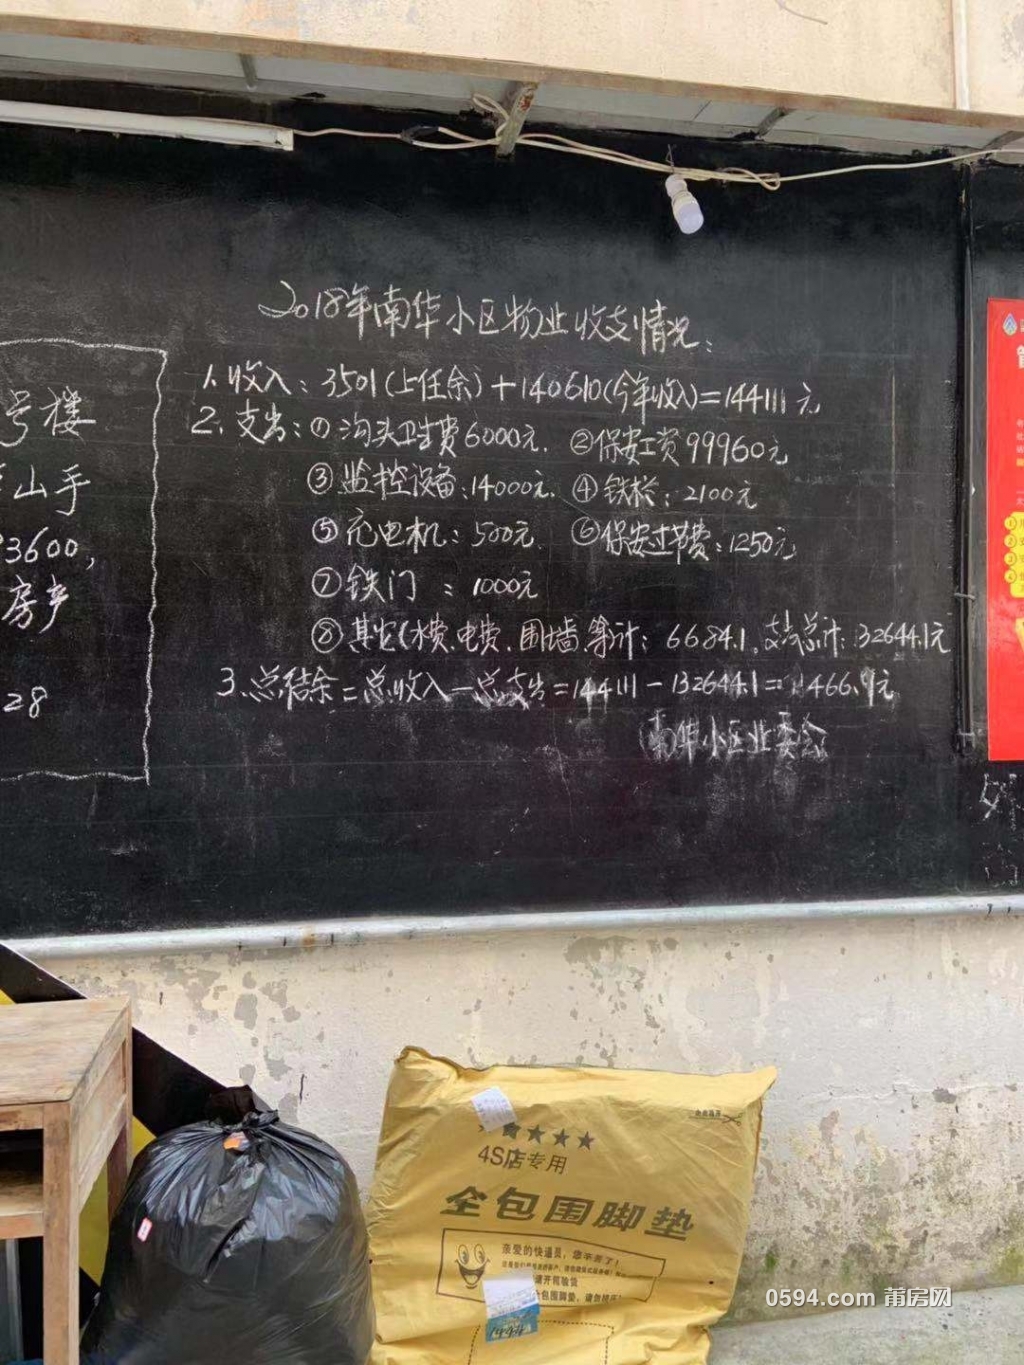 2018年南华小区物业收支情况：
1、收入：3501(上任余)+140610(今年收入)=144111元
2、支出：①沟头卫生费6000元、②保安工资99960元
③监控设备：14000元、④铁栓：2100元
⑤充电机：500元、⑥保安过节费：1250元、
⑦铁门：1000元
⑧其它(水费、电费、围墙、等计：6684.1。支出总计：132644.1元
3、总结余=总收入-总支出=144111-132644.1=11466.9元
南华小区业委会
号楼
山手
3600，
房产
28
★★★★★
4S店专用
全包围脚垫
亲爱的快递员，您辛苦了！
0594.com 莆房网